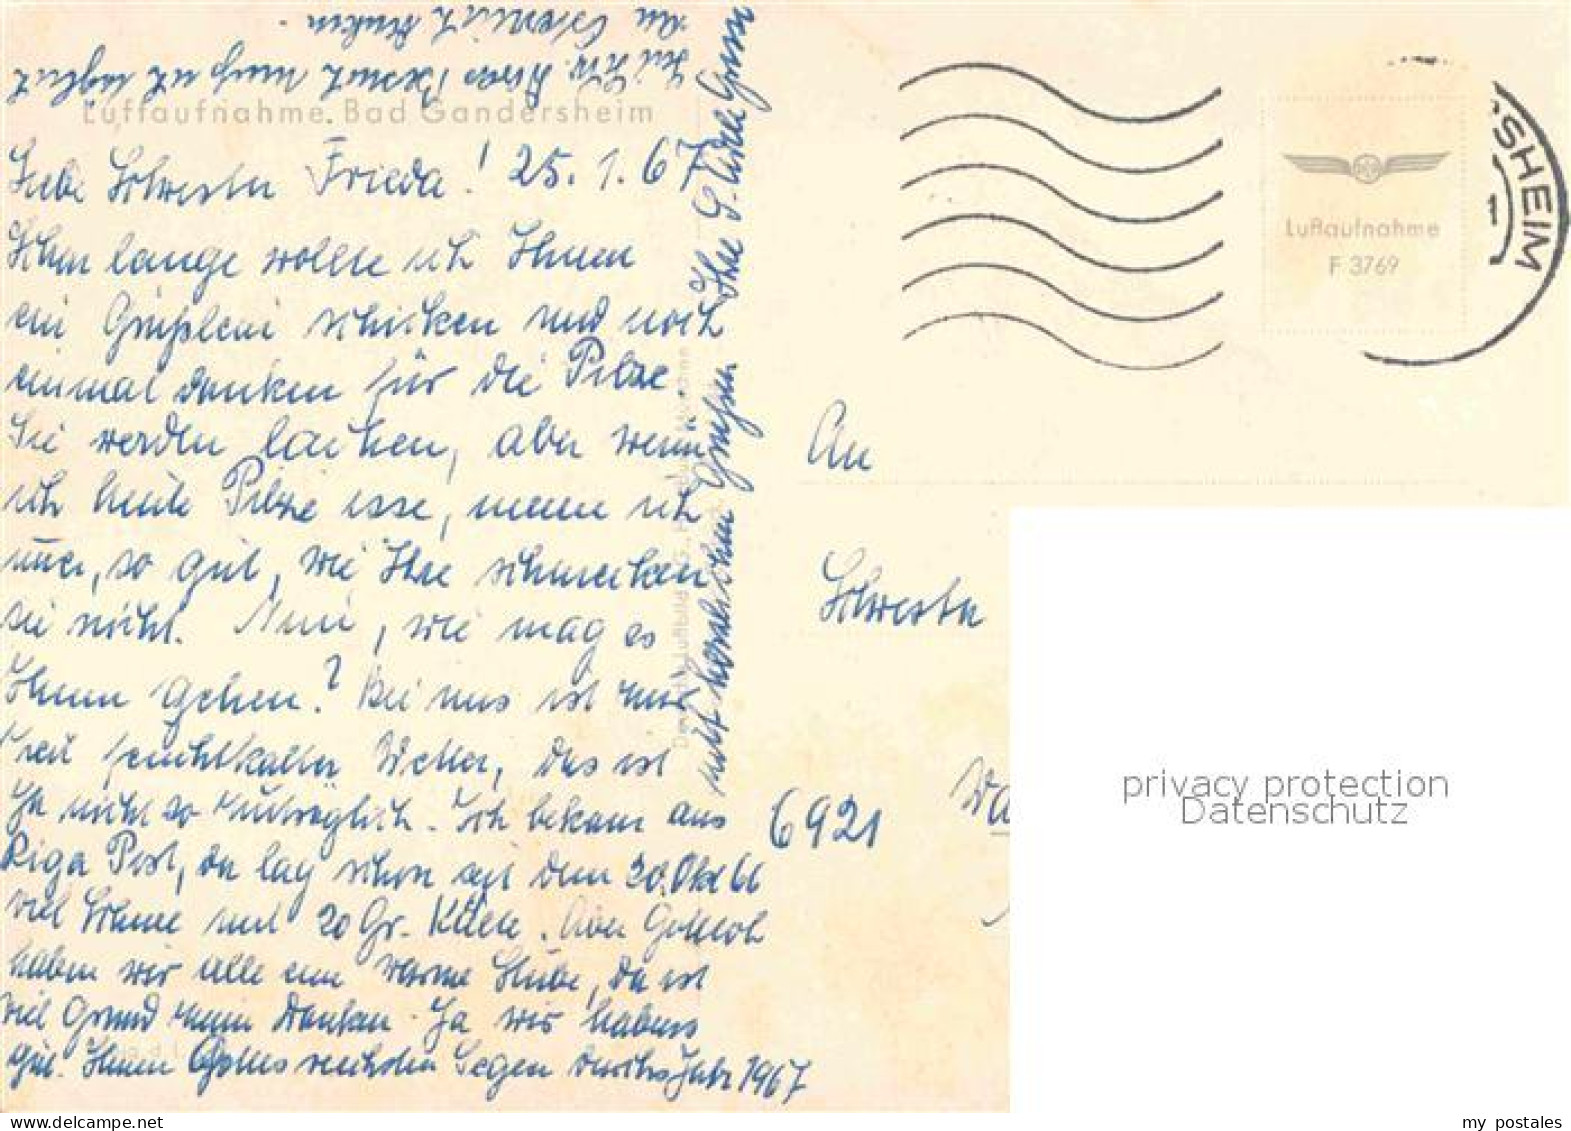 Luftaufnahme. Bad Gandersheim
Liebe Schwester Frieda! 25.1.67
Schon lange wollte ich Ihnen
ein Grüßlein schicken und noch
einmal danken für die Pilze.
Sie werden lachen, aber wenn
ich heute Pilze esse, meine ich
immer, so gut, wie Ihre schmecken
sie nicht. Nun, wie mag es
Ihnen gehen? Bei uns ist nur
feuchtkaltes Wetter, das ist
ja nicht so zuträglich. Ich bekam aus
Riga Post, da lag schon seit dem 20. Okt 66
viel Schnee und 20 Gr. Kälte. Aber Gottlob
haben wir alle eine warme Stube, da ist
viel Grund zum Danken. Ja wir habens
gut. Ihnen Gottes reichsten Segen durchs Jahr 1967
mit herzlichen Grüßen Ihre S. Adele
SHEIM
1
Luftaufnahme
F 3769
An
Schwester
6921
privacy protection
Datenschutz
my postales